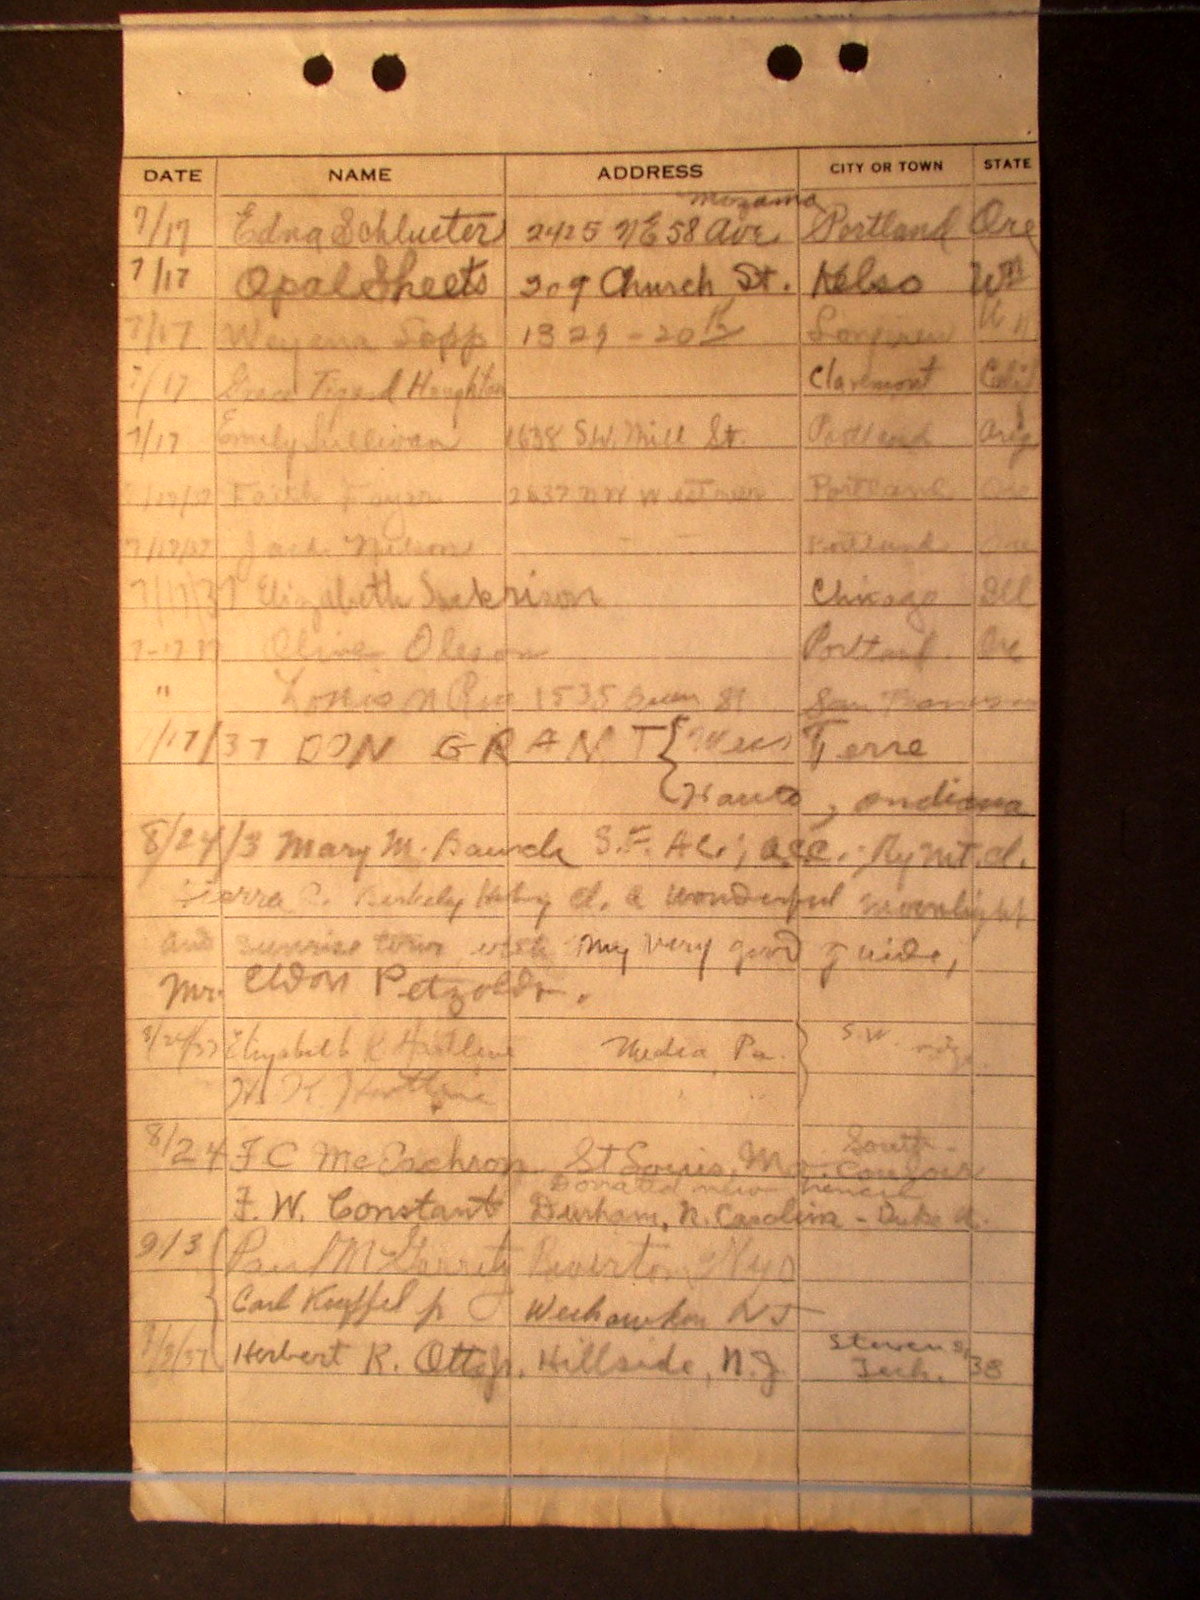 DATE NAME ADDRESS CITY OR TOWN STATE
Mazama
7/17 Edna Schlueter 2425 NE 58 Ave. Portland Ore
7/17 Opal Sheets 209 Church St. Kelso Wn
7/17 Sopp 1329 - 20th Wn
7/17 Grace Tigard Houghton Claremont Calif
7/17 Emily Sullivan 1638 S.W. Mill St. Portland Oreg
Faith Fryer 2637 NW Westover Portland Ore
7/17/37 Jack Nelson - - Portland Ore
7/17/37 Elizabeth Chicago Ill
7-17 37 Olive Oleson Portland Ore
" 1535 San Francisco
7/17/37 DON GRANT { West Terre
Haute, Indiana
8/24/3 Mary M. S.F. Ry Mt. Cl.
Sierra C. Berkeley Cl. a wonderful moonlight
and sunrise tour with my very good guide,
Mr. Eldon Petzoldt.
8/24/37 Elizabeth K Hartline Media, Pa. } S.W. ridge
H. K. Hartline " "
South
8/24 F C McEachron St Louis, Mo. Couloir
Donated new pencil
F. W. Constant Durham, N. Carolina - Duke U.
9/3 { Paul McGarrity NYS
Carl Keuffel jr Weehawken NJ
Stevens
9/3/37 Herbert R. Otto Jr. Hillside, N.J Tech. 38